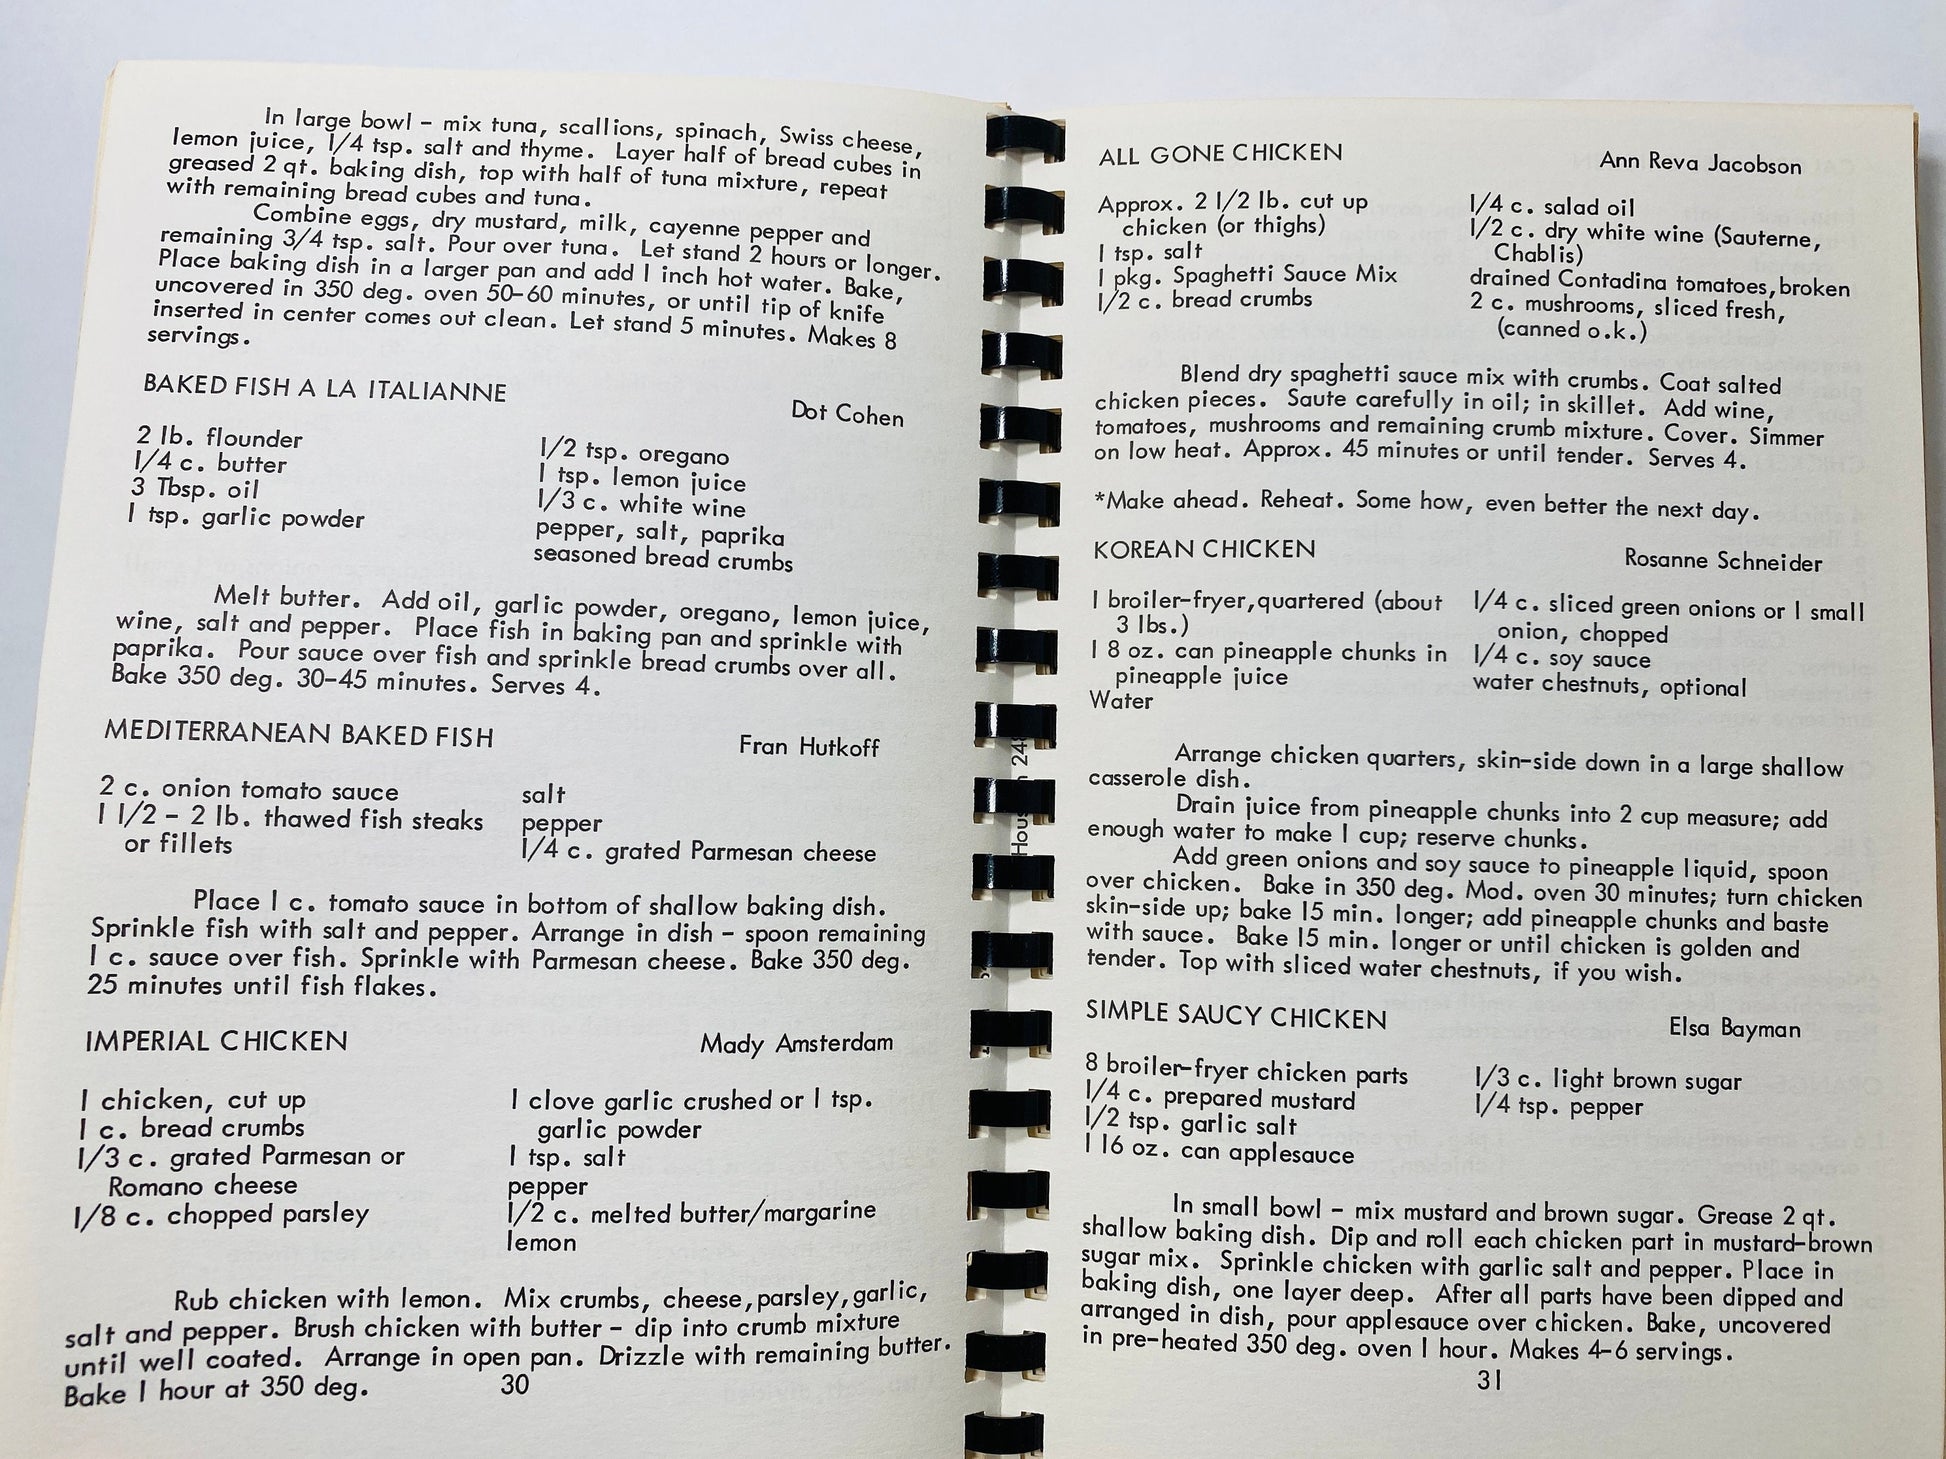 In large bowl - mix tuna, scallions, spinach, Swiss cheese,
lemon juice, 1/4 tsp. salt and thyme. Layer half of bread cubes in
greased 2 qt. baking dish, top with half of tuna mixture, repeat
with remaining bread cubes and tuna.
Combine eggs, dry mustard, milk, cayenne pepper and
remaining 3/4 tsp. salt. Pour over tuna. Let stand 2 hours or longer.
Place baking dish in a larger pan and add 1 inch hot water. Bake,
uncovered in 350 deg. oven 50-60 minutes, or until tip of knife
inserted in center comes out clean. Let stand 5 minutes. Makes 8
servings.
BAKED FISH A LA ITALIANNE
Dot Cohen
2 lb. flounder
1/4 c. butter
3 Tbsp. oil
1 tsp. garlic powder
1/2 tsp. oregano
1 tsp. lemon juice
1/3 c. white wine
pepper, salt, paprika
seasoned bread crumbs
Melt butter. Add oil, garlic powder, oregano, lemon juice,
wine, salt and pepper. Place fish in baking pan and sprinkle with
paprika. Pour sauce over fish and sprinkle bread crumbs over all.
Bake 350 deg. 30-45 minutes. Serves 4.
MEDITERRANEAN BAKED FISH
Fran Hutkoff
2 c. onion tomato sauce
1 1/2 - 2 lb. thawed fish steaks
or fillets
salt
pepper
1/4 c. grated Parmesan cheese
Place 1 c. tomato sauce in bottom of shallow baking dish.
Sprinkle fish with salt and pepper. Arrange in dish - spoon remaining
1 c. sauce over fish. Sprinkle with Parmesan cheese. Bake 350 deg.
25 minutes until fish flakes.
IMPERIAL CHICKEN
Mady Amsterdam
1 chicken, cut up
1 c. bread crumbs
1/3 c. grated Parmesan or
Romano cheese
1/8 c. chopped parsley
1 clove garlic crushed or 1 tsp.
garlic powder
1 tsp. salt
pepper
1/2 c. melted butter/margarine
lemon
Rub chicken with lemon. Mix crumbs, cheese, parsley, garlic,
salt and pepper. Brush chicken with butter - dip into crumb mixture
until well coated. Arrange in open pan. Drizzle with remaining butter.
Bake 1 hour at 350 deg.
30
ALL GONE CHICKEN
Ann Reva Jacobson
Approx. 2 1/2 lb. cut up
chicken (or thighs)
1 tsp. salt
1 pkg. Spaghetti Sauce Mix
1/2 c. bread crumbs
1/4 c. salad oil
1/2 c. dry white wine (Sauterne,
Chablis)
drained Contadina tomatoes, broken
2 c. mushrooms, sliced fresh,
(canned o.k.)
Blend dry spaghetti sauce mix with crumbs. Coat salted
chicken pieces. Saute carefully in oil; in skillet. Add wine,
tomatoes, mushrooms and remaining crumb mixture. Cover. Simmer
on low heat. Approx. 45 minutes or until tender. Serves 4.
*Make ahead. Reheat. Some how, even better the next day.
KOREAN CHICKEN
Rosanne Schneider
1 broiler-fryer, quartered (about
3 lbs.)
1 8 oz. can pineapple chunks in
pineapple juice
Water
1/4 c. sliced green onions or 1 small
onion, chopped
1/4 c. soy sauce
water chestnuts, optional
Arrange chicken quarters, skin-side down in a large shallow
casserole dish.
Drain juice from pineapple chunks into 2 cup measure; add
enough water to make 1 cup; reserve chunks.
Add green onions and soy sauce to pineapple liquid, spoon
over chicken. Bake in 350 deg. Mod. oven 30 minutes; turn chicken
skin-side up; bake 15 min. longer; add pineapple chunks and baste
with sauce. Bake 15 min. longer or until chicken is golden and
tender. Top with sliced water chestnuts, if you wish.
SIMPLE SAUCY CHICKEN
Elsa Bayman
8 broiler-fryer chicken parts
1/4 c. prepared mustard
1/2 tsp. garlic salt
1 16 oz. can applesauce
1/3 c. light brown sugar
1/4 tsp. pepper
In small bowl - mix mustard and brown sugar. Grease 2 qt.
shallow baking dish. Dip and roll each chicken part in mustard-brown
sugar mix. Sprinkle chicken with garlic salt and pepper. Place in
baking dish, one layer deep. After all parts have been dipped and
arranged in dish, pour applesauce over chicken. Bake, uncovered
in pre-heated 350 deg. oven 1 hour. Makes 4-6 servings.
31